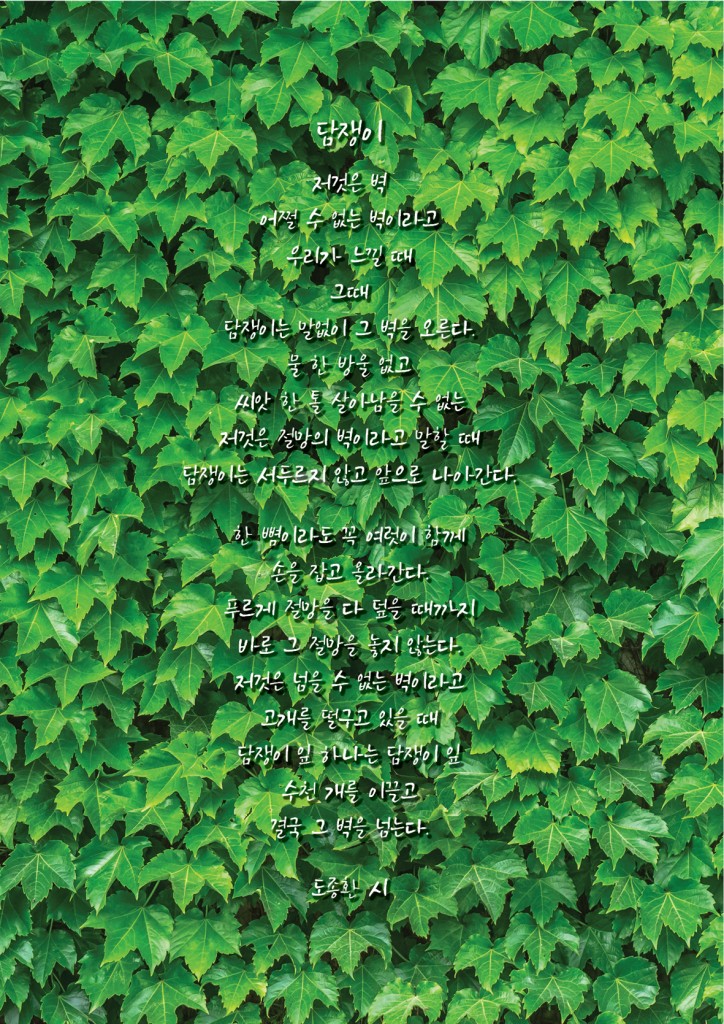 담쟁이
저것은 벽
어쩔 수 없는 벽이라고
우리가 느낄 때
그때
담쟁이는 말없이 그 벽을 오른다.
물 한 방울 없고
씨앗 한 톨 살아남을 수 없는
저것은 절망의 벽이라고 말할 때
담쟁이는 서두르지 않고 앞으로 나아간다.
한 뼘이라도 꼭 여럿이 함께
손을 잡고 올라간다.
푸르게 절망을 다 덮을 때까지
바로 그 절망을 놓지 않는다.
저것은 넘을 수 없는 벽이라고
고개를 떨구고 있을 때
담쟁이 잎 하나는 담쟁이 잎
수천 개를 이끌고
결국 그 벽을 넘는다.
도종환 시